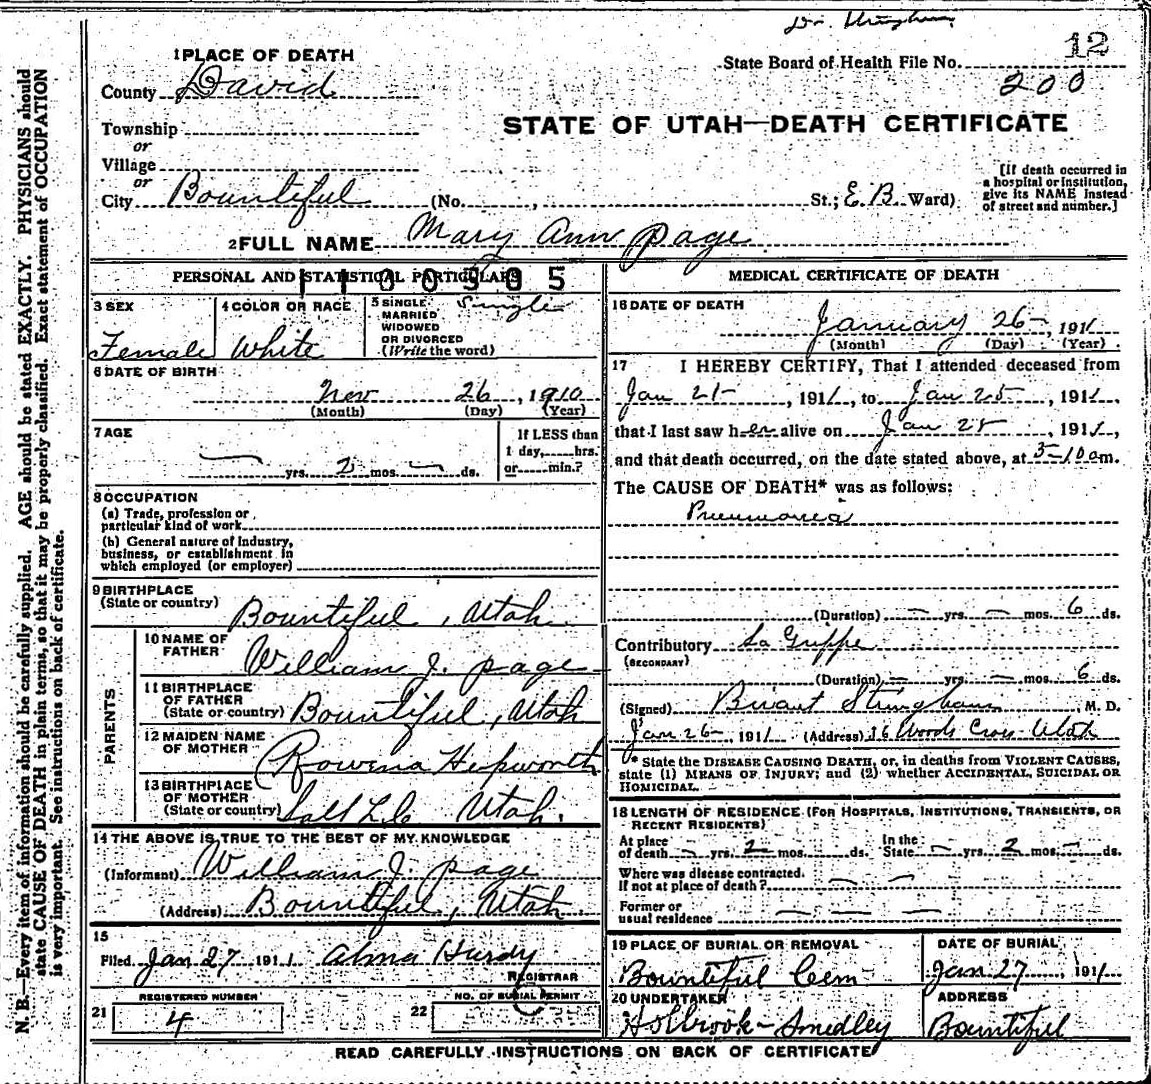 Dr.
12
State Board of Health File No. 200
1 PLACE OF DEATH
County David
STATE OF UTAH—DEATH CERTIFICATE
Township
or
Village
or
City Bountiful (No. , St.; E. B. Ward)
[If death occurred in
a hospital or institution,
give its NAME instead
of street and number.]
2 FULL NAME Mary Ann Page
PERSONAL AND STATISTICAL PARTICULARS
3 SEX
Female
4 COLOR OR RACE
White
5 SINGLE
MARRIED
WIDOWED
OR DIVORCED
(Write the word)
Single
6 DATE OF BIRTH
Nov 26, 1910
(Month) (Day) (Year)
7 AGE
— yrs. 2 mos. — ds.
If LESS than
1 day, hrs.
or min.?
8 OCCUPATION
(a) Trade, profession or
particular kind of work
(b) General nature of industry,
business, or establishment in
which employed (or employer)
9 BIRTHPLACE
(State or country)
Bountiful, Utah
PARENTS
10 NAME OF
FATHER
William J. Page
11 BIRTHPLACE
OF FATHER
(State or country) Bountiful, Utah
12 MAIDEN NAME
OF MOTHER
Rowena Hepworth
13 BIRTHPLACE
OF MOTHER
(State or country) Salt L. C. Utah.
14 THE ABOVE IS TRUE TO THE BEST OF MY KNOWLEDGE
(Informant) William J. Page
(Address) Bountiful, Utah
15
Filed Jan 27 1911 Alma Hardy
REGISTRAR
21 REGISTERED NUMBER
4
22 NO. OF BURIAL PERMIT
MEDICAL CERTIFICATE OF DEATH
16 DATE OF DEATH
January 26, 1911
(Month) (Day) (Year)
17 I HEREBY CERTIFY, That I attended deceased from
Jan 21, 1911, to Jan 25, 1911,
that I last saw her alive on Jan 25, 1911,
and that death occurred, on the date stated above, at m.
The CAUSE OF DEATH* was as follows:
Pneumonia
(Duration) — yrs. — mos. 6 ds.
Contributory La Grippe
(SECONDARY)
(Duration) — yrs. — mos. 6 ds.
(Signed) Briant Stringham, M. D.
Jan 26, 1911 (Address) Woods Cross Utah
* State the DISEASE CAUSING DEATH, or, in deaths from VIOLENT CAUSES,
state (1) MEANS OF INJURY; and (2) whether ACCIDENTAL, SUICIDAL OR
HOMICIDAL.
18 LENGTH OF RESIDENCE (FOR HOSPITALS, INSTITUTIONS, TRANSIENTS, OR
RECENT RESIDENTS)
At place
of death — yrs. 2 mos. ds.
In the
State — yrs. 2 mos. — ds.
Where was disease contracted,
If not at place of death?
Former or
usual residence
19 PLACE OF BURIAL OR REMOVAL
Bountiful Cem
DATE OF BURIAL
Jan 27, 1911
20 UNDERTAKER
Holbrook-Smedley
ADDRESS
Bountiful
READ CAREFULLY INSTRUCTIONS ON BACK OF CERTIFICATE
N. B.—Every item of information should be carefully supplied. AGE should be stated EXACTLY. PHYSICIANS should
state CAUSE OF DEATH in plain terms, so that it may be properly classified. Exact statement of OCCUPATION
is very important. See instructions on back of certificate.